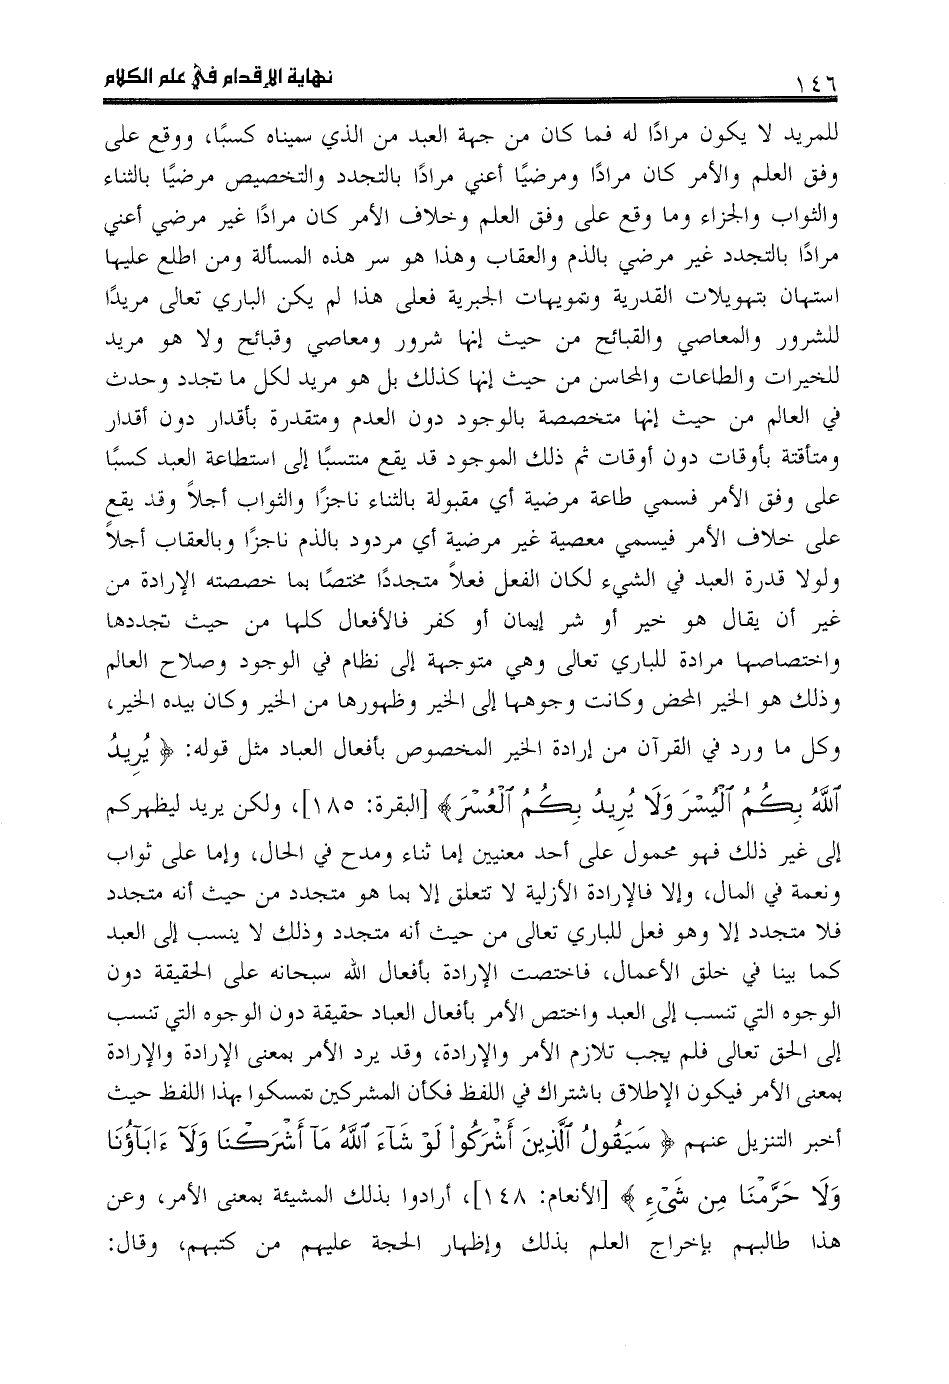 ١٤٦ نهاية الإقدام في علم الكلام
للمريد لا يكون مرادًا له فما كان من جهة العبد من الذي سميناه كسبًا، ووقع على
وفق العلم والأمر كان مرادًا ومرضيًا أعني مرادًا بالتجدد والتخصيص مرضيًا بالثناء
والثواب والجزاء وما وقع على وفق العلم وخلاف الأمر كان مرادًا غير مرضي أعني
مرادًا بالتجدد غير مرضي بالذم والعقاب وهذا هو سر هذه المسألة ومن اطلع عليها
استهان بتهويلات القدرية وتمويهات الجبرية فعلى هذا لم يكن الباري تعالى مريدًا
للشرور والمعاصي والقبائح من حيث إنها شرور ومعاصي وقبائح ولا هو مريد
للخيرات والطاعات والمحاسن من حيث إنها كذلك بل هو مريد لكل ما تجدد وحدث
في العالم من حيث إنها متخصصة بالوجود دون العدم ومتقدرة بأقدار دون أقدار
ومتأقتة بأوقات دون أوقات ثم ذلك الموجود قد يقع منتسبًا إلى استطاعة العبد كسبًا
على وفق الأمر فسمي طاعة مرضية أي مقبولة بالثناء ناجزًا والثواب أجلاً وقد يقع
على خلاف الأمر فيسمي معصية غير مرضية أي مردود بالذم ناجزًا وبالعقاب أجلاً
ولولا قدرة العبد في الشيء لكان الفعل فعلاً متجددًا مختصًا بما خصصته الإرادة من
غير أن يقال هو خير أو شر إيمان أو كفر فالأفعال كلها من حيث تجددها
واختصاصها مرادة للباري تعالى وهي متوجهة إلى نظام في الوجود وصلاح العالم
وذلك هو الخير المحض وكانت وجوهها إلى الخير وظهورها من الخير وكان بيده الخير،
وكل ما ورد في القرآن من إرادة الخير المخصوص بأفعال العباد مثل قوله: ﴿ يُرِيدُ
ٱللَّهُ بِكُمُ ٱلْيُسْرَ وَلَا يُرِيدُ بِكُمُ ٱلْعُسْرَ ﴾ [البقرة: ١٨٥]، ولكن يريد ليظهركم
إلى غير ذلك فهو محمول على أحد معنيين إما ثناء ومدح في الحال، وإما على ثواب
ونعمة في المال، وإلا فالإرادة الأزلية لا تتعلق إلا بما هو متجدد من حيث أنه متجدد
فلا متجدد إلا وهو فعل للباري تعالى من حيث أنه متجدد وذلك لا ينسب إلى العبد
كما بينا في خلق الأعمال، فاختصت الإرادة بأفعال الله سبحانه على الحقيقة دون
الوجوه التي تنسب إلى العبد واختص الأمر بأفعال العباد حقيقة دون الوجوه التي تنسب
إلى الحق تعالى فلم يجب تلازم الأمر والإرادة، وقد يرد الأمر بمعنى الإرادة والإرادة
بمعنى الأمر فيكون الإطلاق باشتراك في اللفظ فكأن المشركين تمسكوا بهذا اللفظ حيث
أخبر التنزيل عنهم ﴿ سَيَقُولُ ٱلَّذِينَ أَشْرَكُوا۟ لَوْ شَآءَ ٱللَّهُ مَآ أَشْرَكْنَا وَلَآ ءَابَآؤُنَا
وَلَا حَرَّمْنَا مِن شَىْءٍ ﴾ [الأنعام: ١٤٨]، أرادوا بذلك المشيئة بمعنى الأمر، وعن
هذا طالبهم بإخراج العلم بذلك وإظهار الحجة عليهم من كتبهم، وقال: